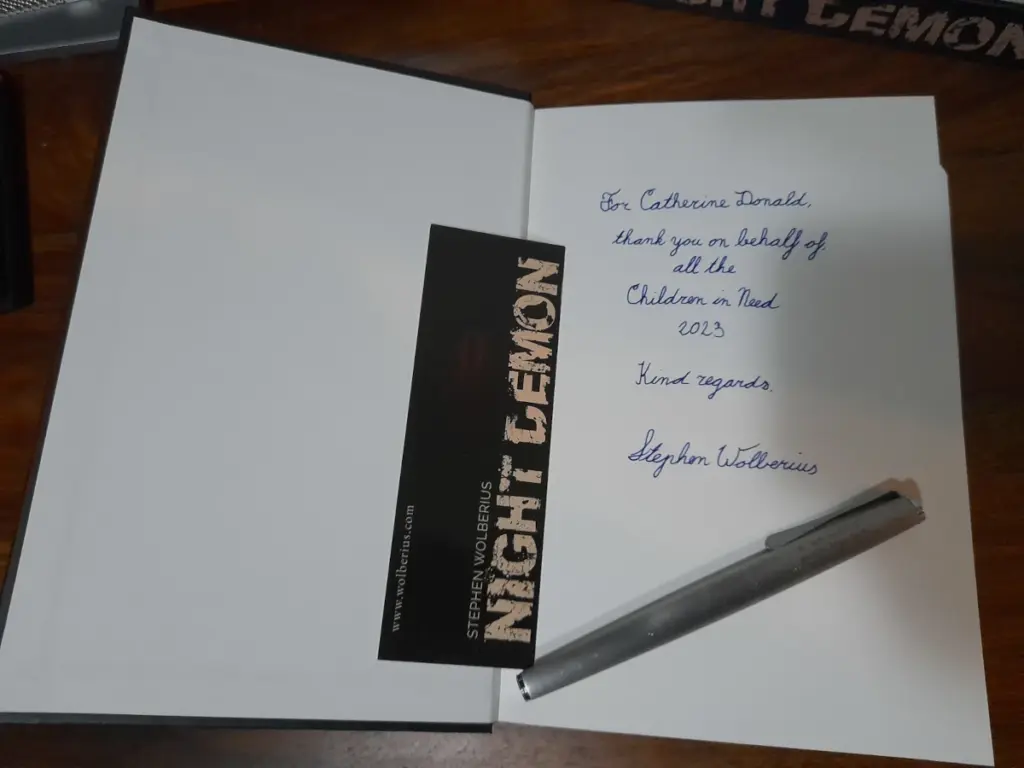 For Catherine Donald,
thank you on behalf of
all the
Children in Need
2023
Kind regards.
Stephen Wolberius
NIGHT DEMON
STEPHEN WOLBERIUS
www.wolberius.com
DEMON